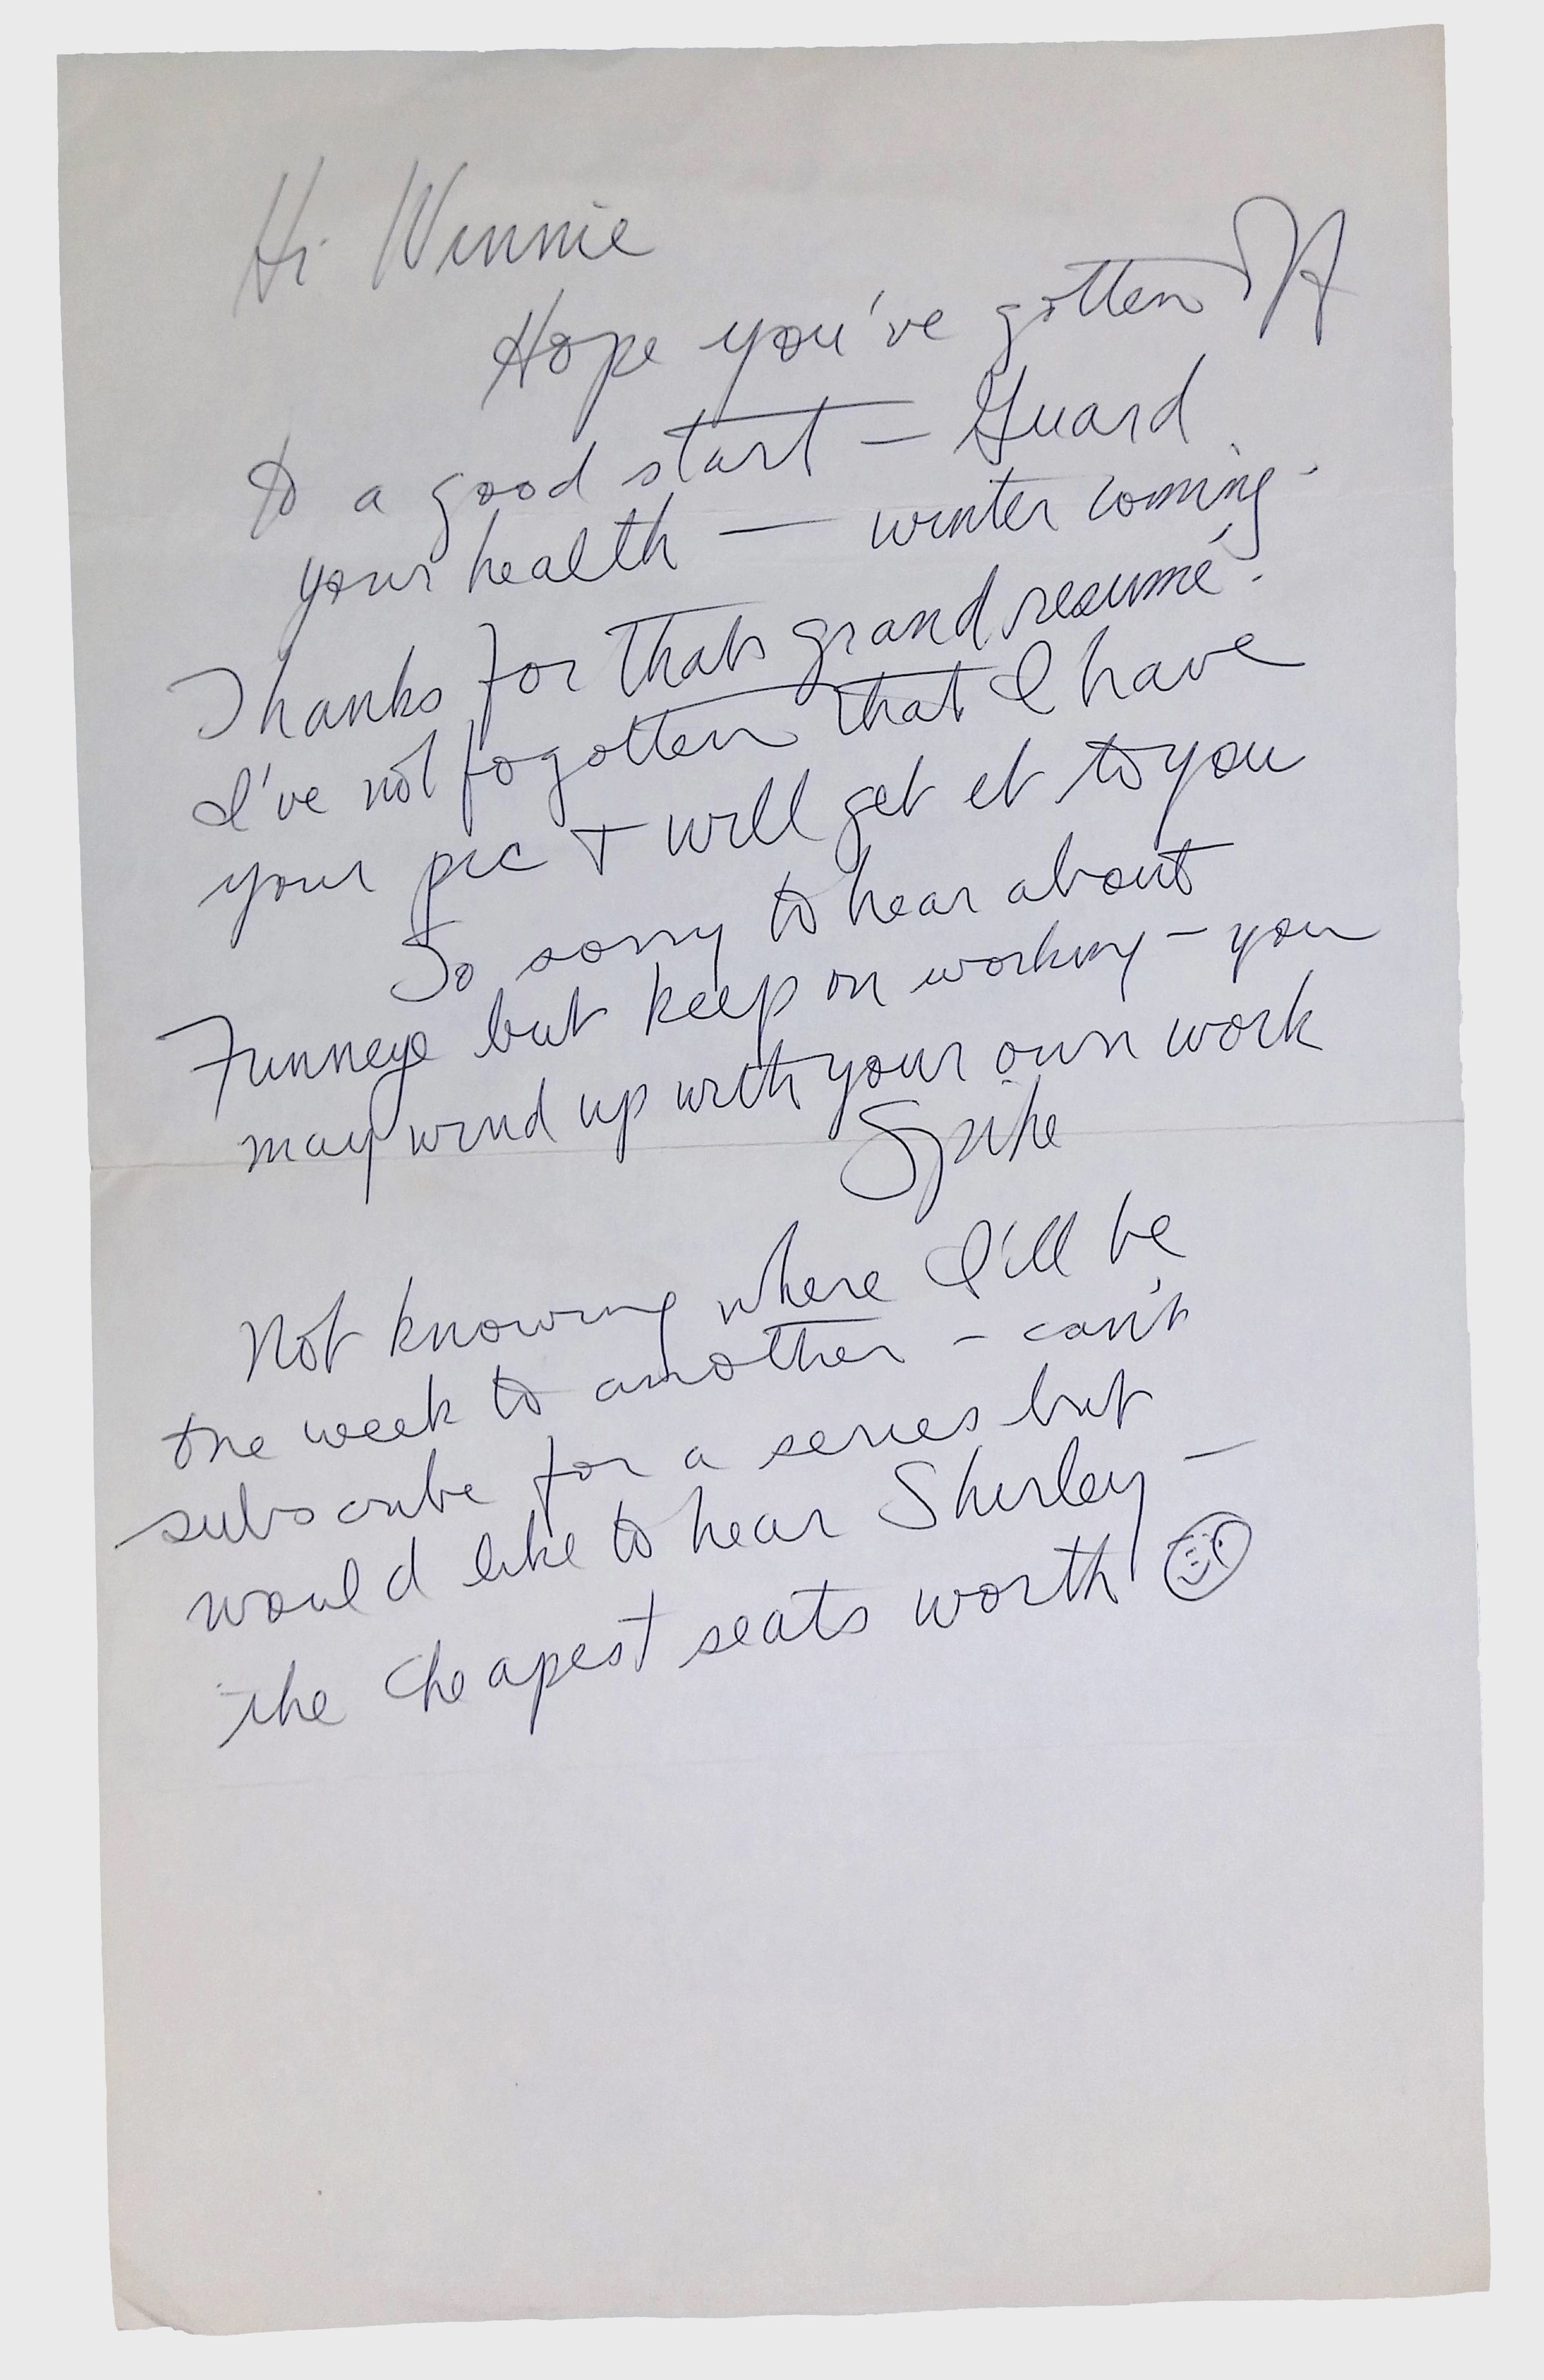 Hi Winnie
Hope you've gotten off
to a good start — Guard
your health — winter coming.
Thanks for thats grand resumé.
I've not fogotten that I have
your pic + will get it to you
So sorry to hear about
but keep on working — you
may wind up with your own work
Spike
Not knowing where I'll be
one week to another — can't
subscribe for a series but
would like to hear Shirley —
the cheapest seats worth